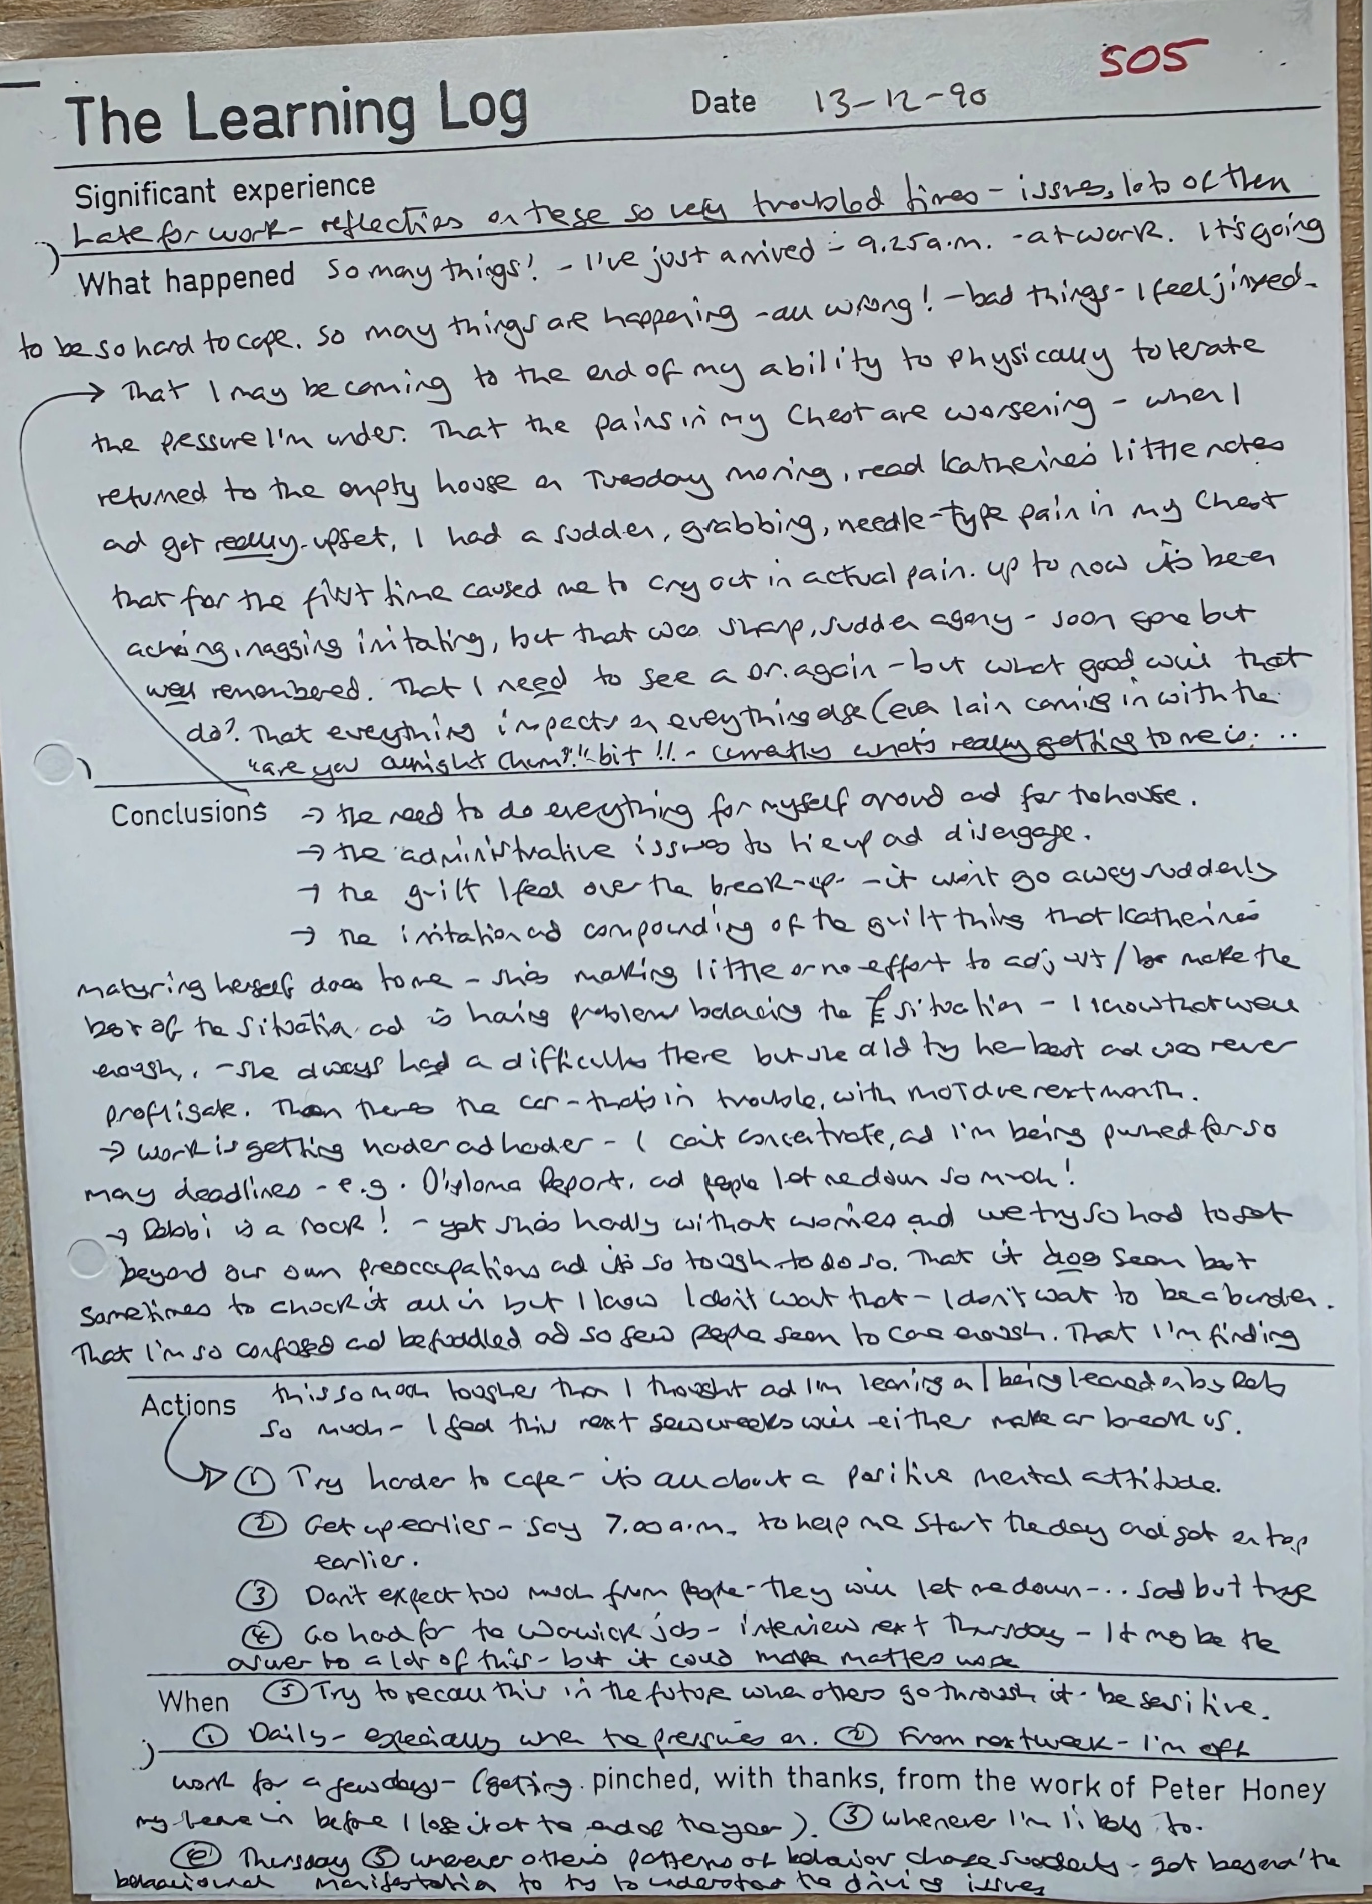 SO5
The Learning Log Date 13-12-90
Significant experience
Late for work - reflections on these so very troubled times - issues, lots of them
What happened So many things! - I've just arrived - 9.25a.m. - at work. It's going
to be so hard to cope. So many things are happening - all wrong! - bad things - I feel jinxed -
→ That I may be coming to the end of my ability to physically tolerate
the pressure I'm under. That the pains in my chest are worsening - when I
returned to the empty house on Tuesday morning, read Katherine's little notes
and got really upset, I had a sudden, grabbing, needle-type pain in my chest
that for the first time caused me to cry out in actual pain. Up to now it's been
aching, nagging irritating, but that was sharp, sudden agony - soon gone but
well remembered. That I need to see a Dr. again - but what good will that
do? That everything impacts on everything else (even Iain coming in with the
"are you alright chum?" bit!! - currently what's really getting to me is...
Conclusions → the need to do everything for myself around and for the house.
→ the administrative issues to tie up and disengage.
→ the guilt I feel over the break-up - it won't go away suddenly
→ the irritation and compounding of the guilt thing that Katherine's
martyring herself does to me - she's making little or no effort to adjust / make the
best of the situation and is having problems balancing the £ situation - I know that well
enough, - she always had a difficulty there but she did try her best and was never
profligate. Then there's the car - that's in trouble, with MOT due next month.
→ Work is getting harder and harder - I can't concentrate, and I'm being pushed for so
many deadlines - e.g. Diploma Report, and people let me down so much!
→ Debbi is a rock! - yet she's hardly without worries and we try so hard to get
beyond our own preoccupations and it's so tough to do so. That it does seem best
sometimes to chuck it all in but I know I don't want that - I don't want to be a burden.
That I'm so confused and befuddled and so few people seem to care enough. That I'm finding
Actions this so much tougher than I thought and I'm leaning on / being leaned on by Debs
so much - I feel this next few weeks will either make or break us.
① Try harder to cope - it's all about a positive mental attitude.
② Get up earlier - say 7.00a.m. to help me start the day and get on top
earlier.
③ Don't expect too much from people - they will let me down -... sad but true
④ Go hard for the Warwick job - interview next Thursday - It may be the
answer to a lot of this - but it could make matters worse
When ⑤ Try to recall this in the future when others go through it - be sensitive.
① Daily - especially when the pressure's on. ② From next week - I'm off
work for a few days - (getting pinched, with thanks, from the work of Peter Honey
my leave in before I lose it at the end of the year). ③ Whenever I'm likely to.
④ Thursday ⑤ Whenever others patterns of behaviour change suddenly - get beyond the
behavioural manifestation to try to understand the driving issues